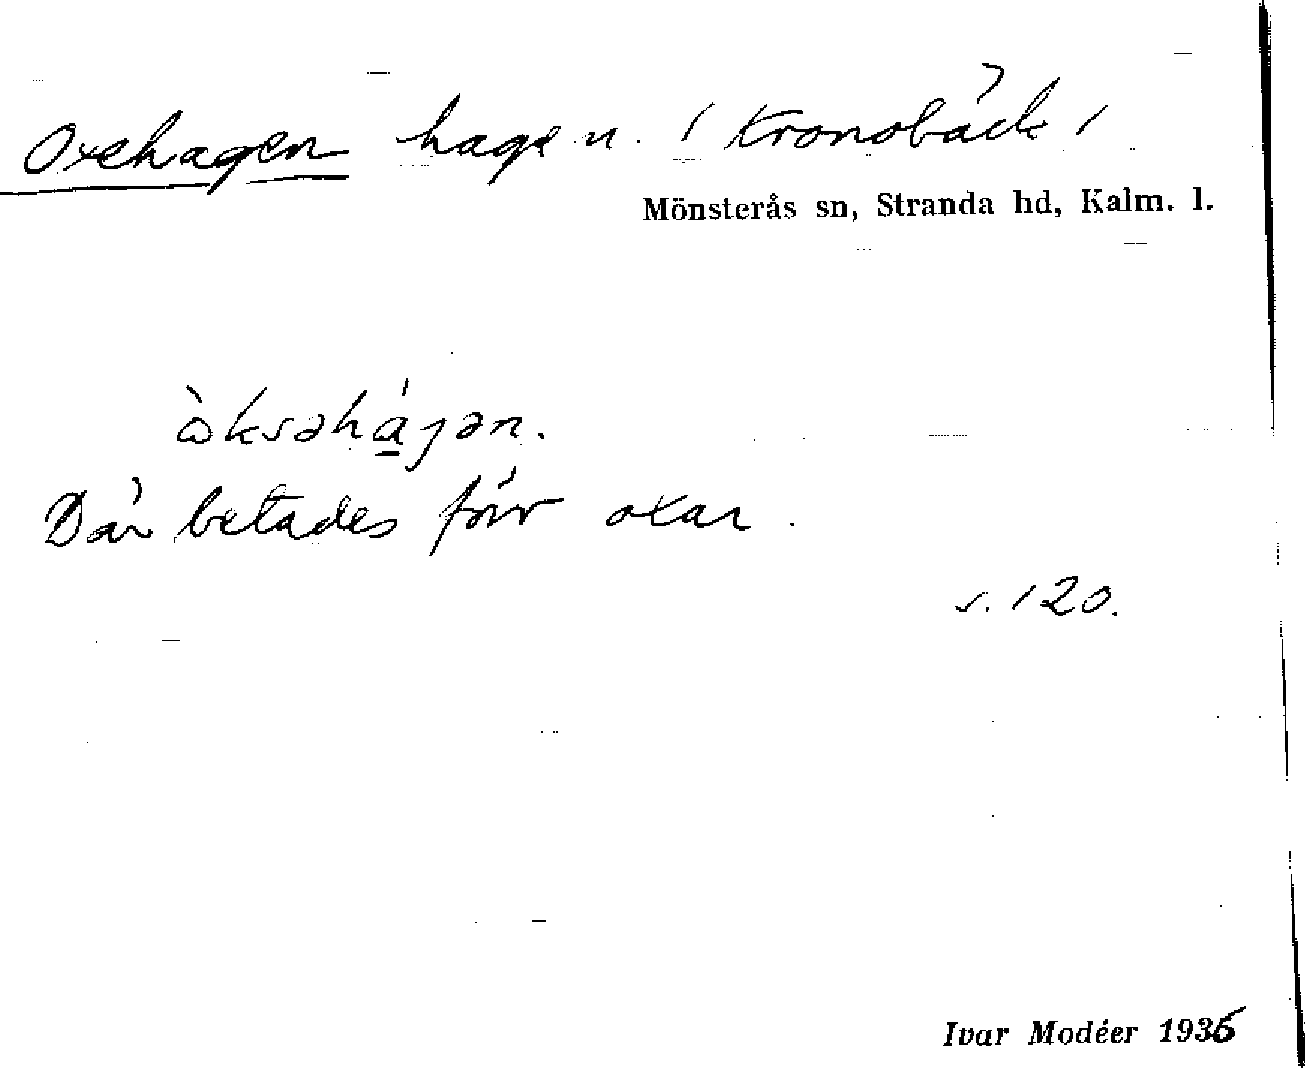 Oxehagen hagen. (Kronobäck)
Mönsterås sn, Stranda hd, Kalm. l.
ɷ̀ksəhá̱jən.
Där betades förr oxar.
s. 120.
Ivar Modéer 1935